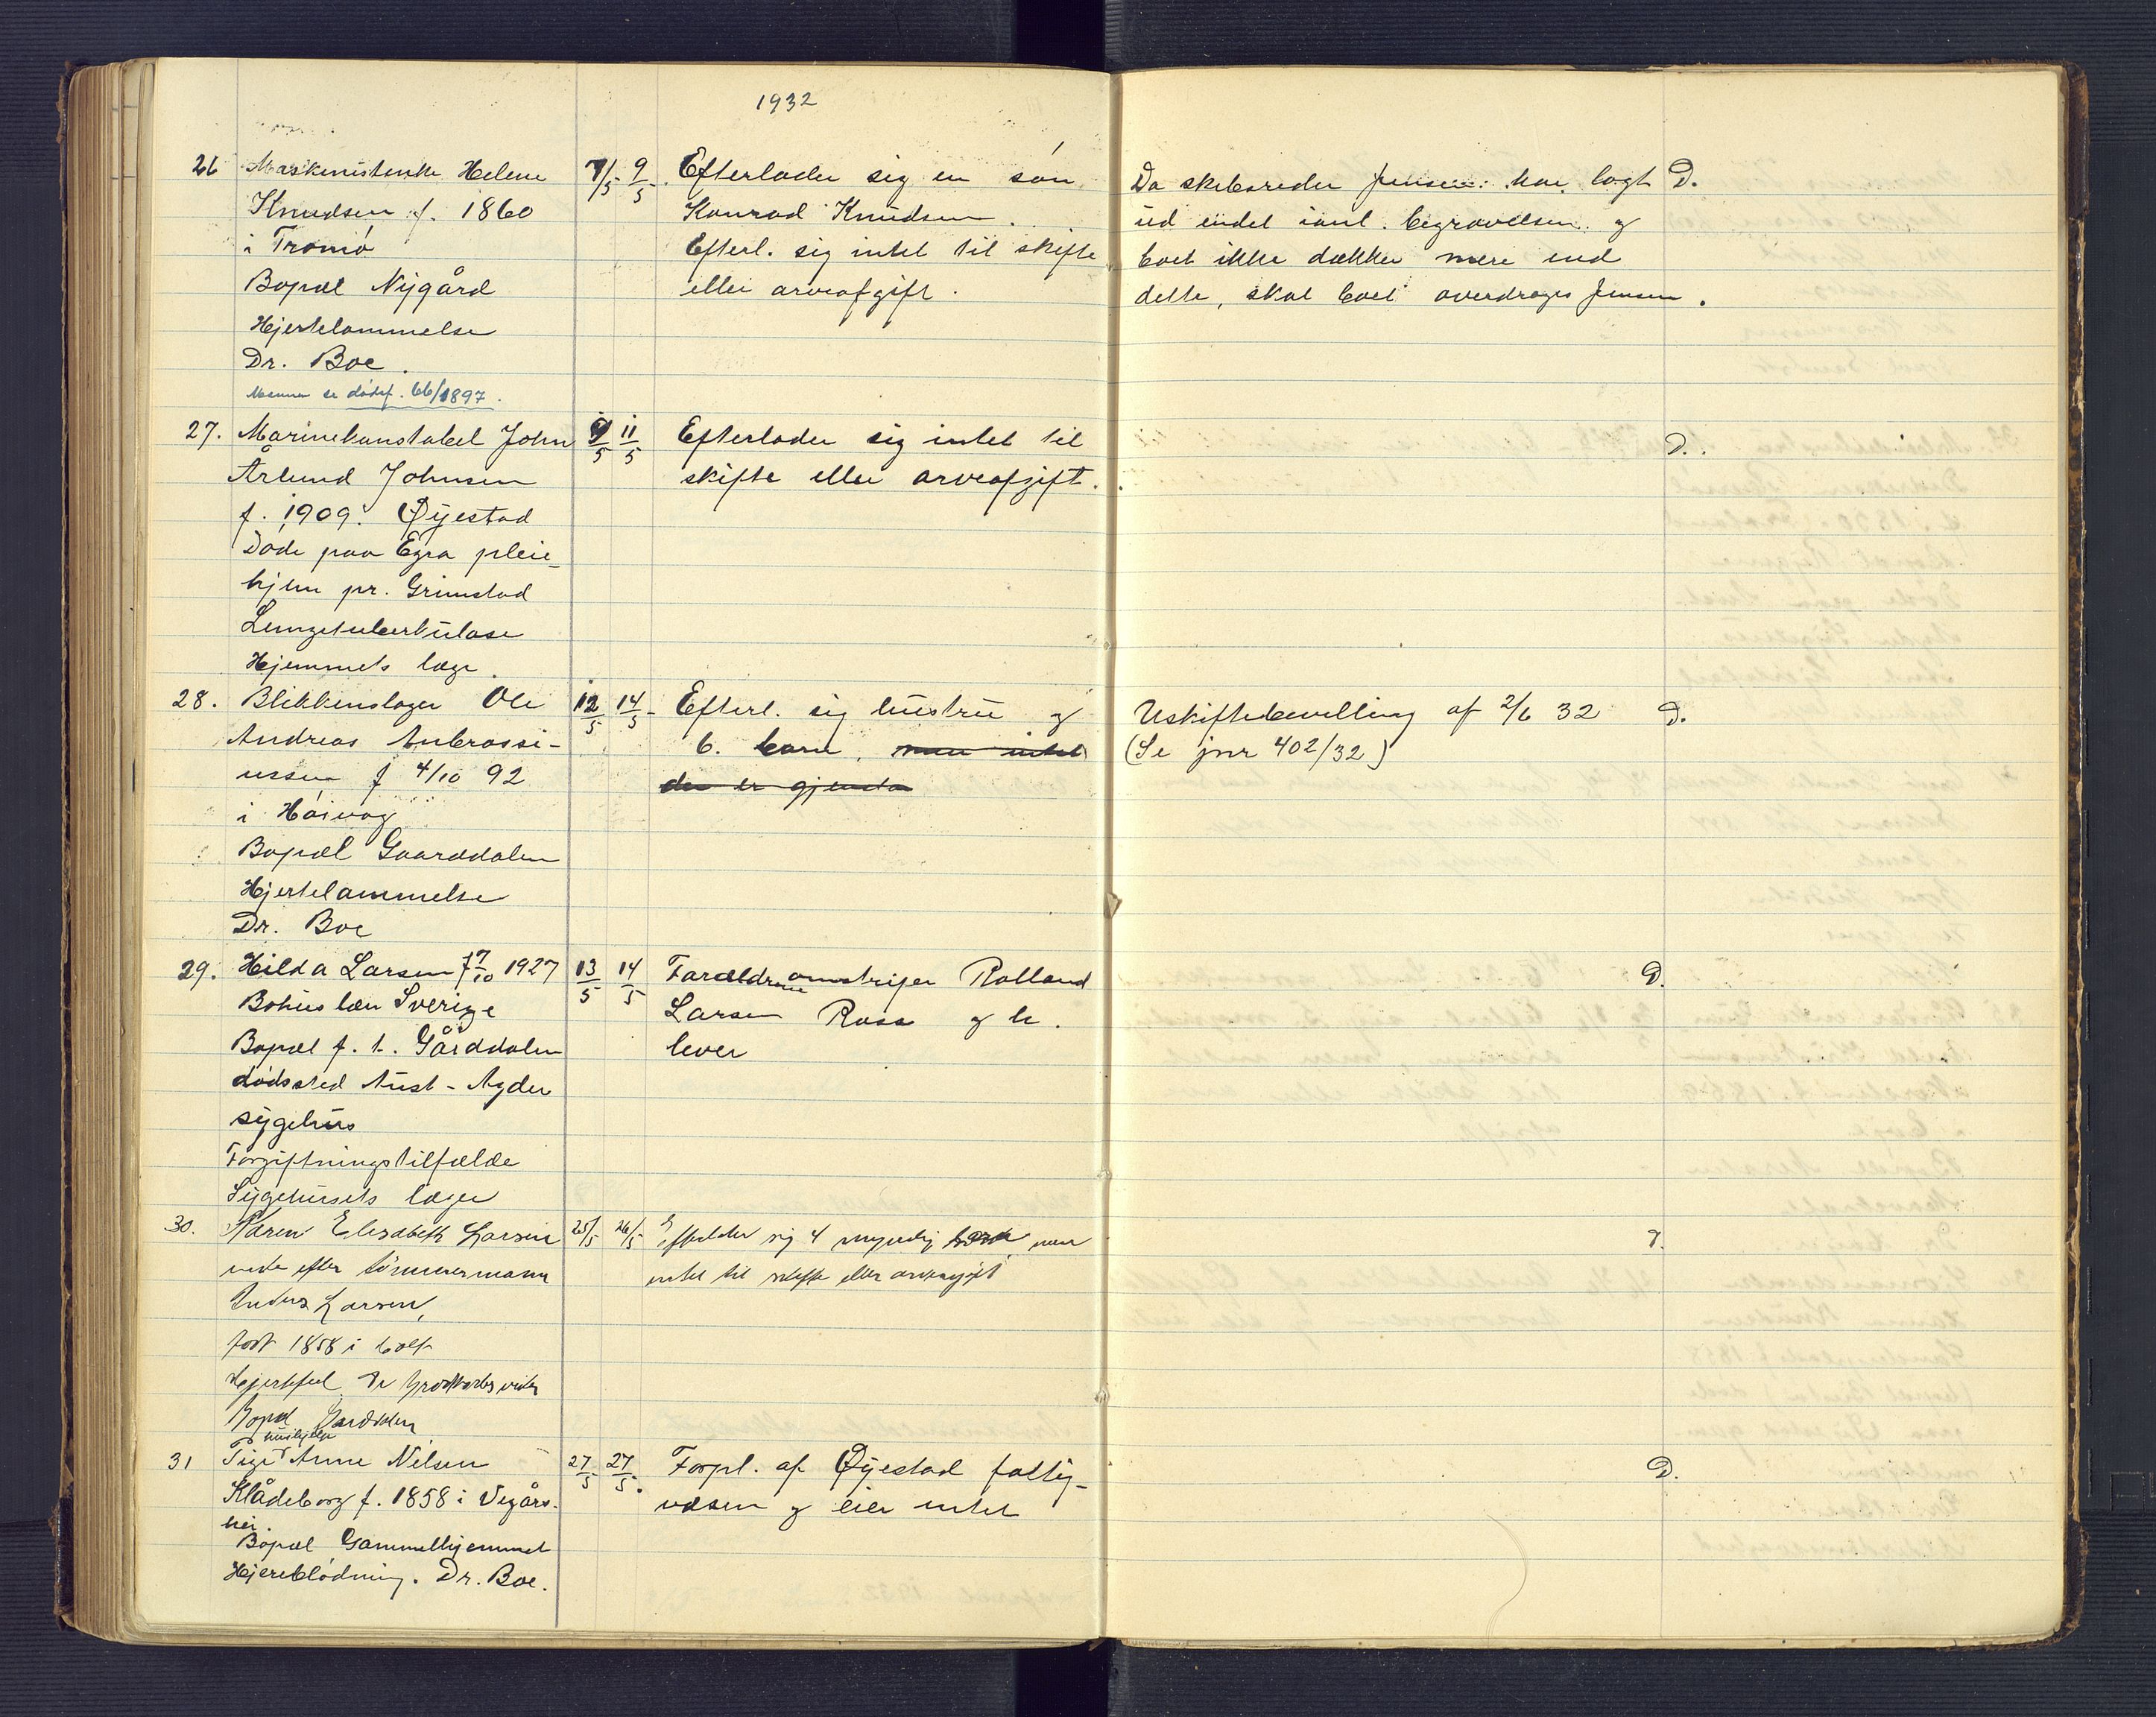 1932
26 Maskinistenke Helene 7/5 9/5. Efterlader sig en søn
Knudsen f. 1860 Konrad Knudsen.
i Tromø Efterl. sig intet til skifte
Bopæl Nygård eller arveafgift.
Hjertelammelse
Dr. Boe.
Mannen se dødsf. 66/1897.
Da skibsreder Jensen har lagt D.
ud endel iant. begravelsen og
boet ikke dækker mere end
dette, skal boet overdrages Jensen.
27. Marinekonstabel John 9/5 11/5 Efterlader sig intet til D.
Årlund Johnsen skifte eller arveafgift.
f. 1909. Øyestad
Døde paa Egra pleie-
hjem pr. Grimstad
Lungetuberkulose
Hjemmets læge.
28. Blikkenslager Ole 12/5 14/5 Efterl. sig hustru og
Andreas Ambrossi- 6. barn. men intet
ussen f 4/10 92 der er gjenda
i Høivåg
Bopæl Gaarddalen
Hjertelammelse
Dr. Boe
Uskiftebevilling af 2/6 32 D.
(Se jnr 402/32)
29. Hilda Larsen f 17/10 1927 13/5 14/5 Forældrene omstreifer Rolland D.
Bohus læn Sverige Larsen Rosa og h.
Bopæl f. t. Gårddalen lever
dødssted Aust-Agder
sygehus
Forgiftningstilfælde
Sygehusets læger
30. Karen Elisabeth Larsen 25/5 26/5 Efterlader sig 4 myndig barn men D.
enke efter tømmermann intet til skifte eller arveavgift
Larsen,
født 1858 i Holt
Hjertefeil Dr
Bopæl Gårddalen
31 Pige hushjelp Anne Nilsen 27/5 27/5. Forpl. af Øyestad fattig- D.
Klådeborg f. 1858 i Vegårs- væsen og eier intet
hei.
Bopæl Gammelhjemmet
Hjerneblødning. Dr. Boe.